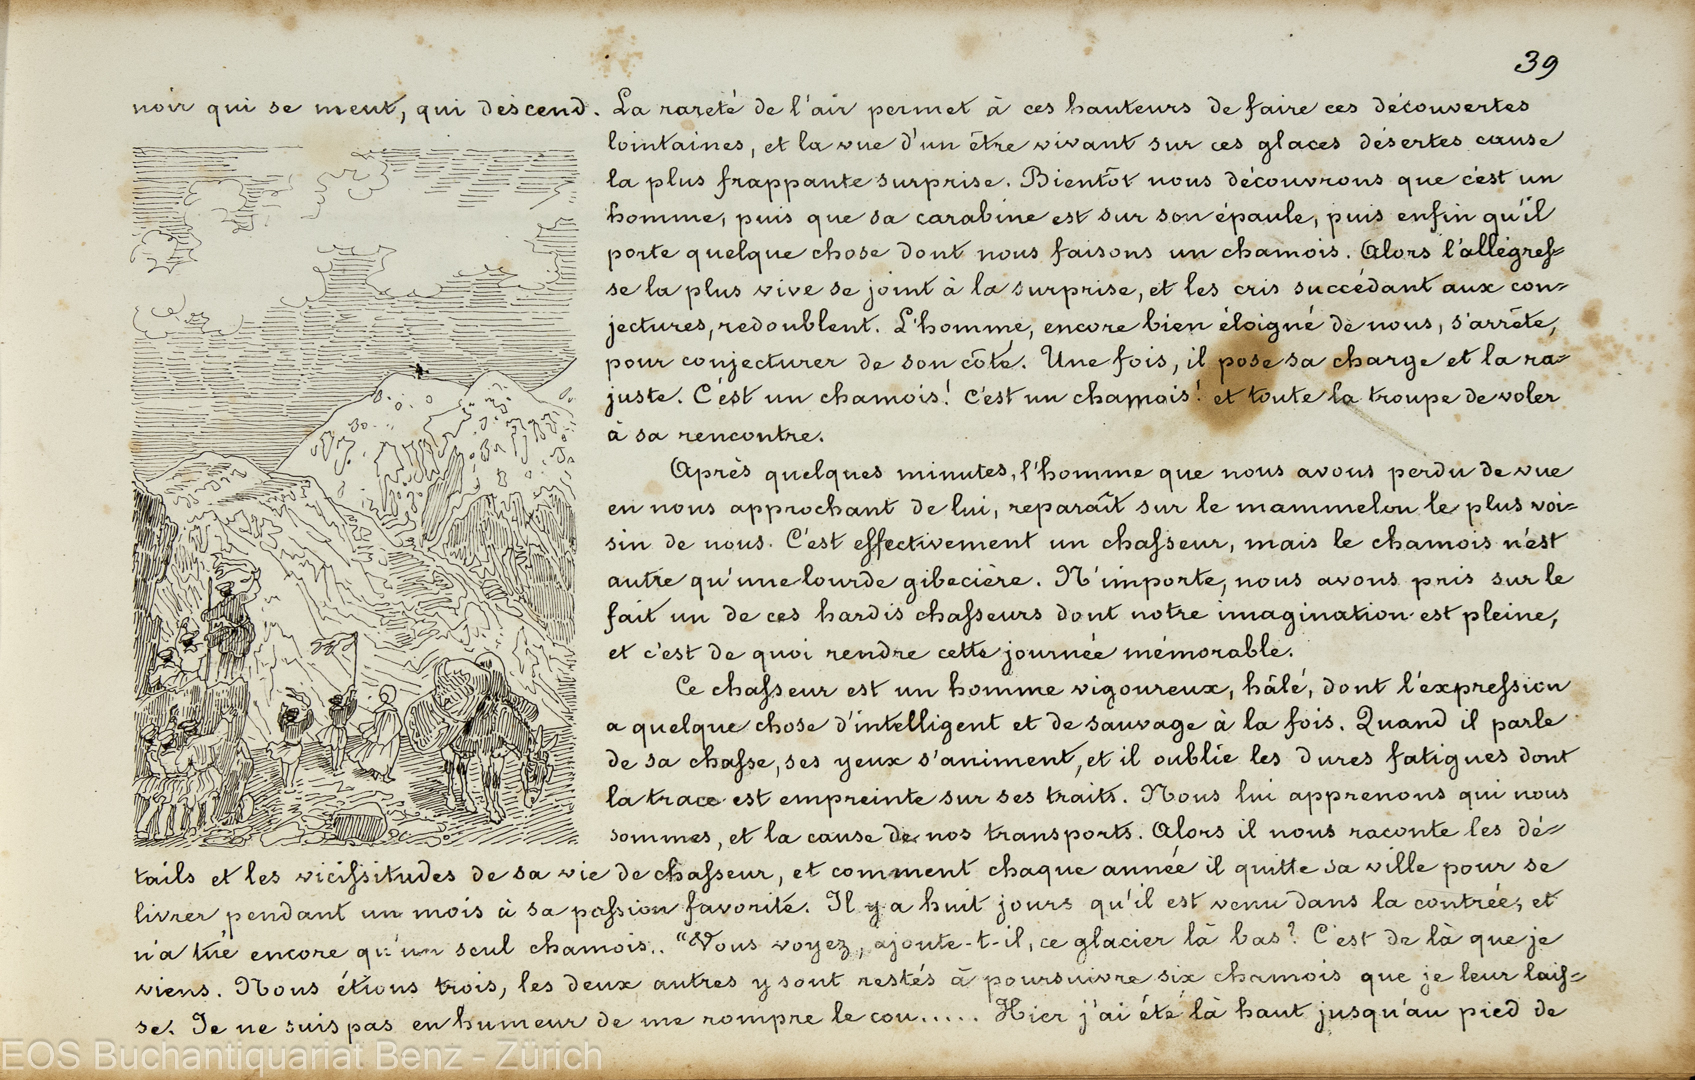 39
noir qui se meut, qui descend. La rareté de l'air permet à ces hauteurs de faire ces découvertes
lointaines, et la vue d'un être vivant sur ces glaces désertes cause
la plus frappante surprise. Bientôt nous découvrons que c'est un
homme, puis que sa carabine est sur son épaule, puis enfin qu'il
porte quelque chose dont nous faisons un chamois. Alors l'allégreſ-
se la plus vive se joint à la surprise, et les cris succédant aux con-
jectures, redoublent. L'homme, encore bien éloigné de nous, s'arrête,
pour conjecturer de son côté. Une fois, il pose sa charge et la ra-
juste. C'est un chamois! c'est un chamois! et toute la troupe de voler
à sa rencontre.
Après quelques minutes, l'homme que nous avons perdu de vue
en nous approchant de lui, reparaît sur le mammelon le plus voi-
sin de nous. C'est effectivement un chaſseur, mais le chamois n'est
autre qu'une lourde gibecière. N'importe, nous avons pris sur le
fait un de ces hardis chaſseurs dont notre imagination est pleine,
et c'est de quoi rendre cette journée mémorable.
Ce chaſseur est un homme vigoureux, hâlé, dont l'expreſsion
a quelque chose d'intelligent et de sauvage à la fois. Quand il parle
de sa chaſse, ses yeux s'animent, et il oublie les dures fatigues dont
la trace est empreinte sur ses traits. Nous lui apprenons qui nous
sommes, et la cause de nos transports. Alors il nous raconte les dé-
tails et les viciſsitudes de sa vie de chaſseur, et comment chaque année il quitte sa ville pour se
livrer pendant un mois à sa paſsion favorite. Il y a huit jours qu'il est venu dans la contrée, et
n'a tué encore qu'un seul chamois.. "Vous voyez, ajoute-t-il, ce glacier là bas? C'est de là que je
viens. Nous étions trois, les deux autres y sont restés à poursuivre six chamois que je leur laiſ-
se. Je ne suis pas en humeur de me rompre le cou..... Hier j'ai été là haut jusqu'au pied de
EOS Buchantiquariat Benz - Zürich